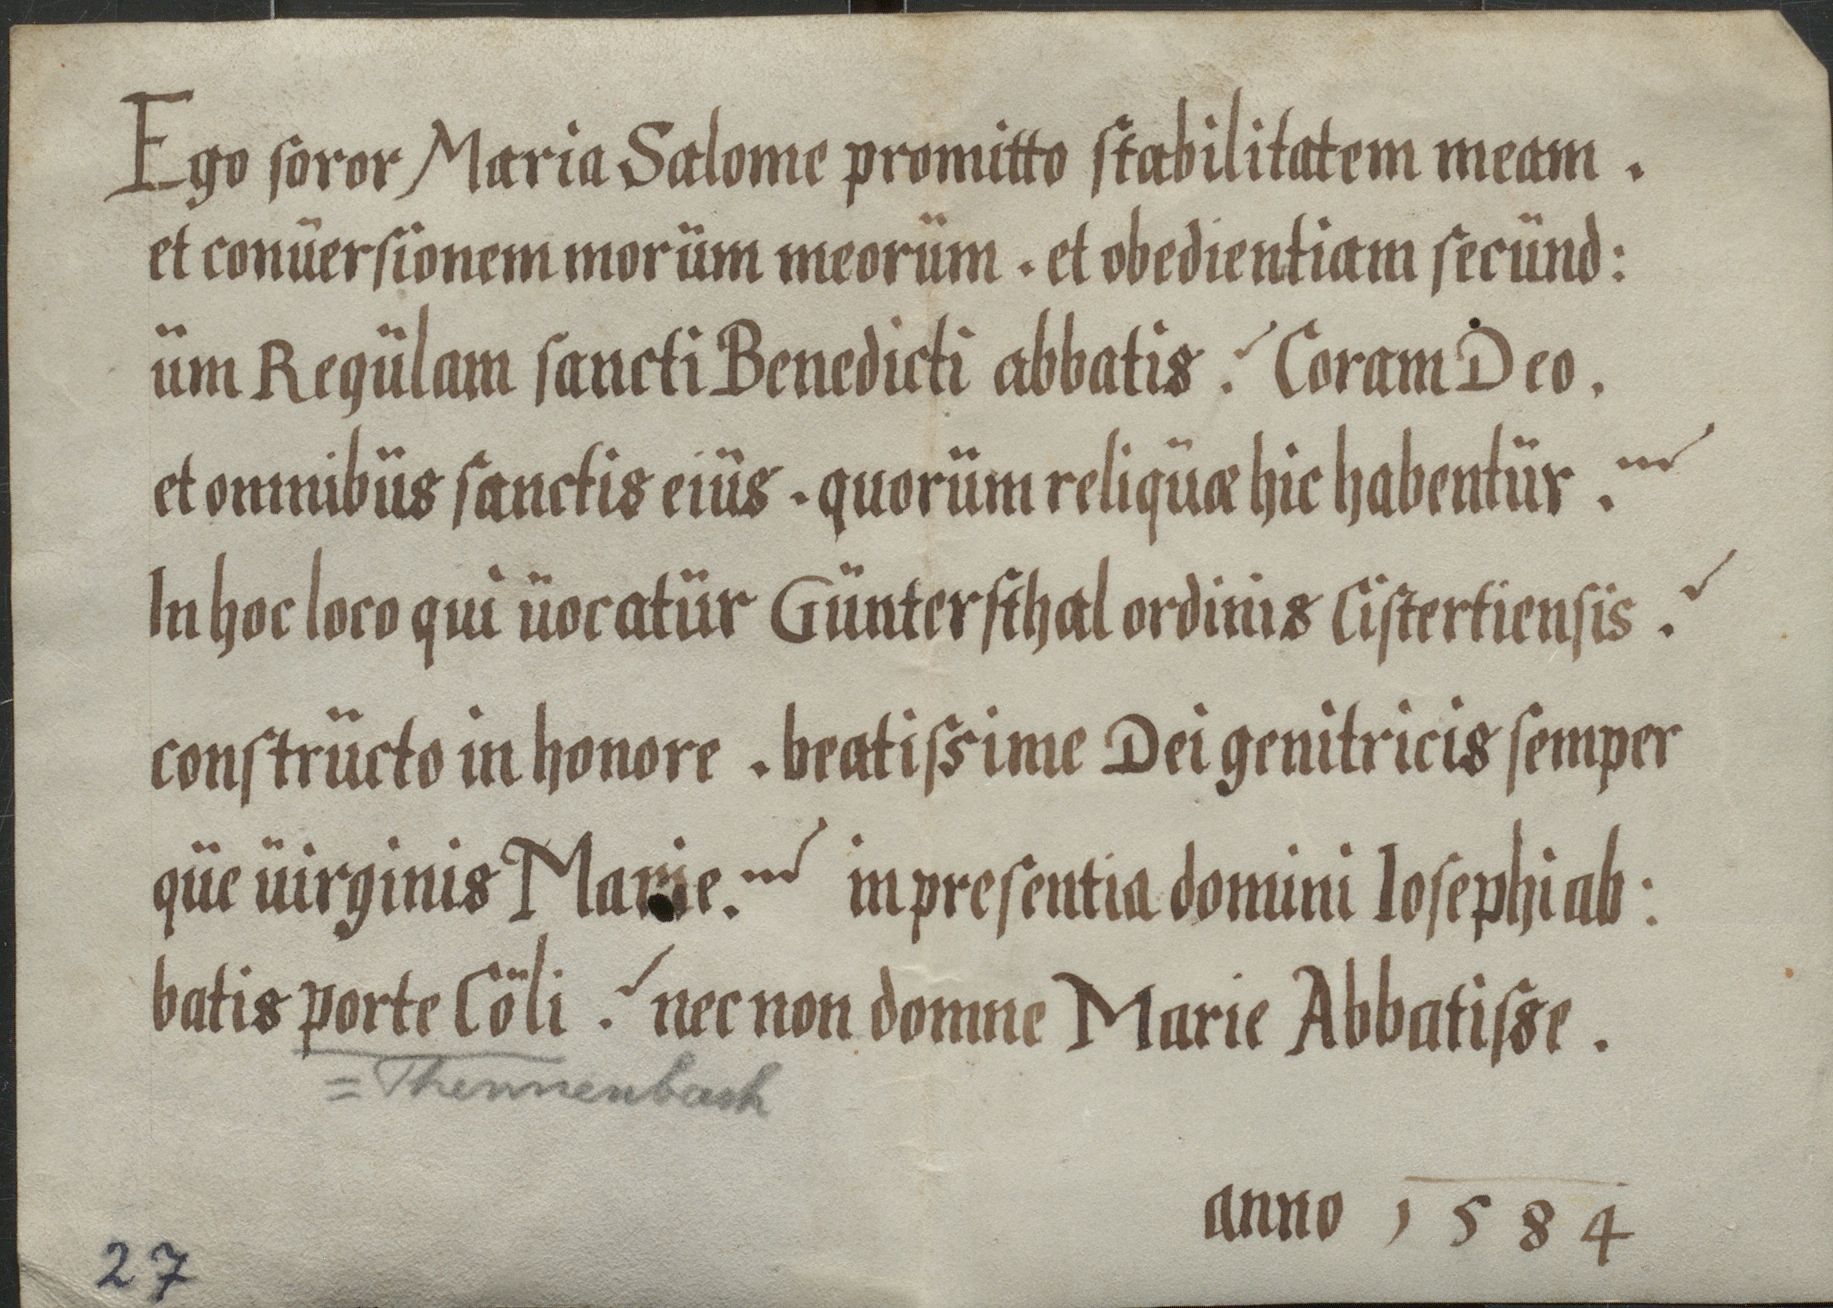 Ego soror Maria Salome promitto ſtabilitatem meam .
et conüerſionem morüm meorüm . et obedientiam ſecünd:
üm Regülam ſancti Benedicti abbatis . Coram Deo .
et omnibüs ſanctis eiüs . quorüm reliqüæ hic habentür .
In hoc loco qui üocatür Günterſthal ordinis Ciſtertienſis .
conſtrücto in honore . beatiſsime Dei genitricis ſemper
qüe üirginis Marie . in preſentia domini Ioſephi ab:
batis porte Cöli . nec non domne Marie Abbatiſse .
= Thennenbach
anno 1584
27